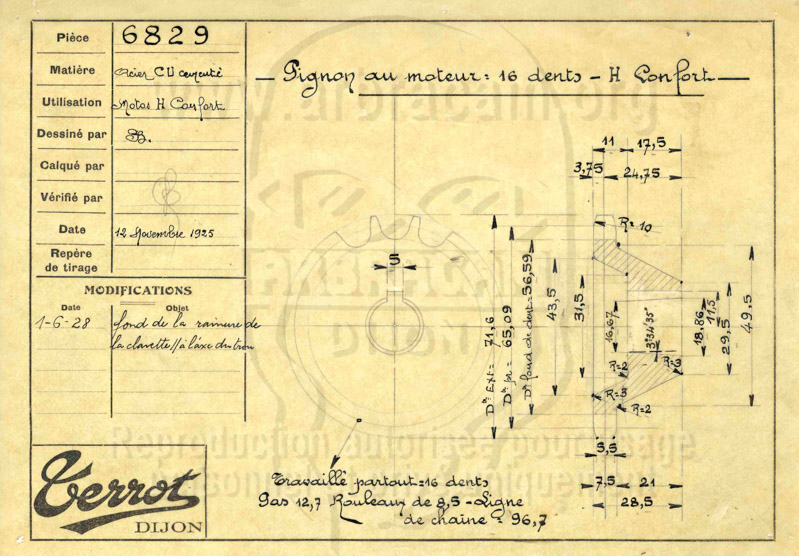 Pièce 6829
Matière Acier CU cementé
Utilisation Motos H Confort
Dessiné par
Calqué par
Vérifié par
Date 12 Novembre 1925
Repère
de tirage
MODIFICATIONS
Date Objet
1-6-28 fond de la rainure de
la clavette // à l'axe du trou
Terrot
DIJON
Pignon au moteur = 16 dents - H Confort
5
Dre Ext = 71,6
Dre pr = 65,09
Dre fond de dent = 56,59
43,5
31,5
16,67
3°34'35"
18,86
11,5
29,5
49.5
11 17,5
3,75 24,75
R= 10
R=2
R=3
R=3
R=2
5,5
7,5 21
28,5
Travaillé partout = 16 dents
Pas 12,7 Rouleaux de 8,5 - Ligne
de chaine = 96,7
Reproduction autorisée pour usage